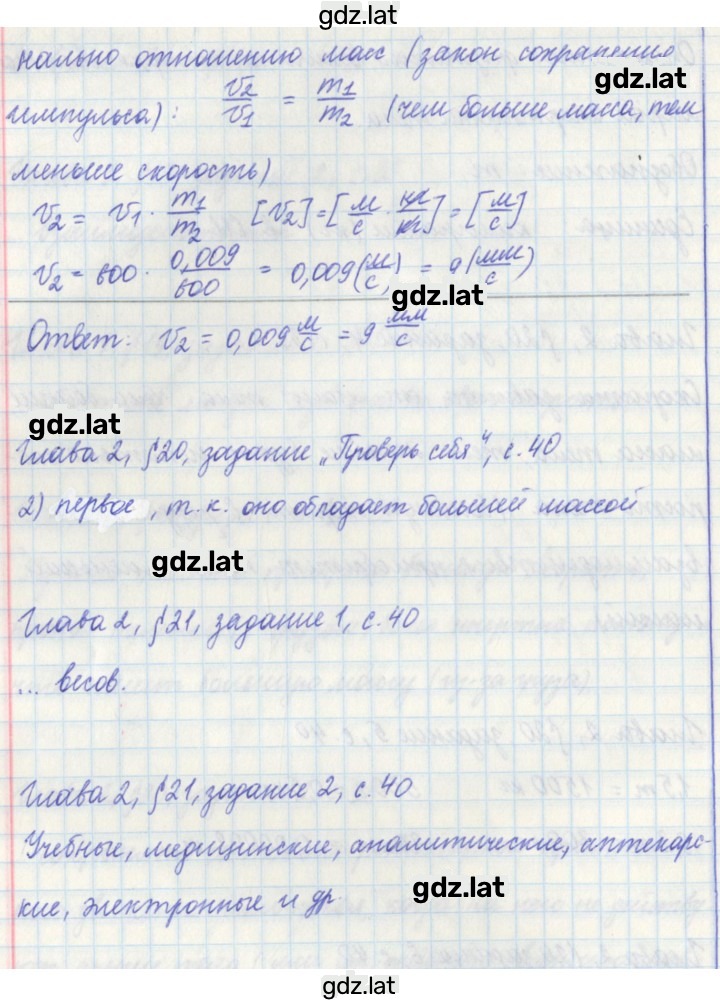 gdz.lat
нально отношению масс (закон сохранения
gdz.lat
импульса): v₂/v₁ = m₁/m₂ (чем больше масса, тем
меньше скорость)
v₂ = v₁ · m₁/m₂ [v₂] = [м/с · кг/кг] = [м/с]
v₂ = 600 · 0,009/600 = 0,009 (м/с) = 9 (мм/с)
gdz.lat
Ответ: v₂ = 0,009 м/с = 9 мм/с
gdz.lat
Глава 2, §20, задание „Проверь себя“, с. 40
2) первое, т. к. оно обладает большей массой
gdz.lat
Глава 2, §21, задание 1, с. 40
... весов.
Глава 2, §21, задание 2, с. 40
Учебные, медицинские, аналитические, аптекарс-
кие, электронные и др.
gdz.lat
gdz.lat